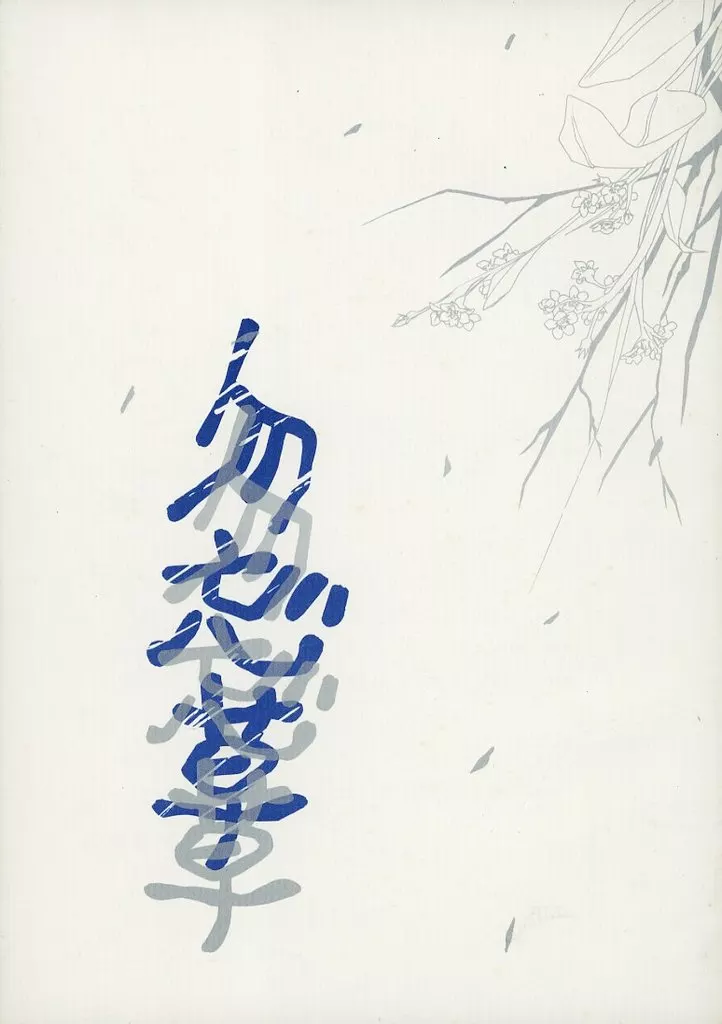 勿忘草